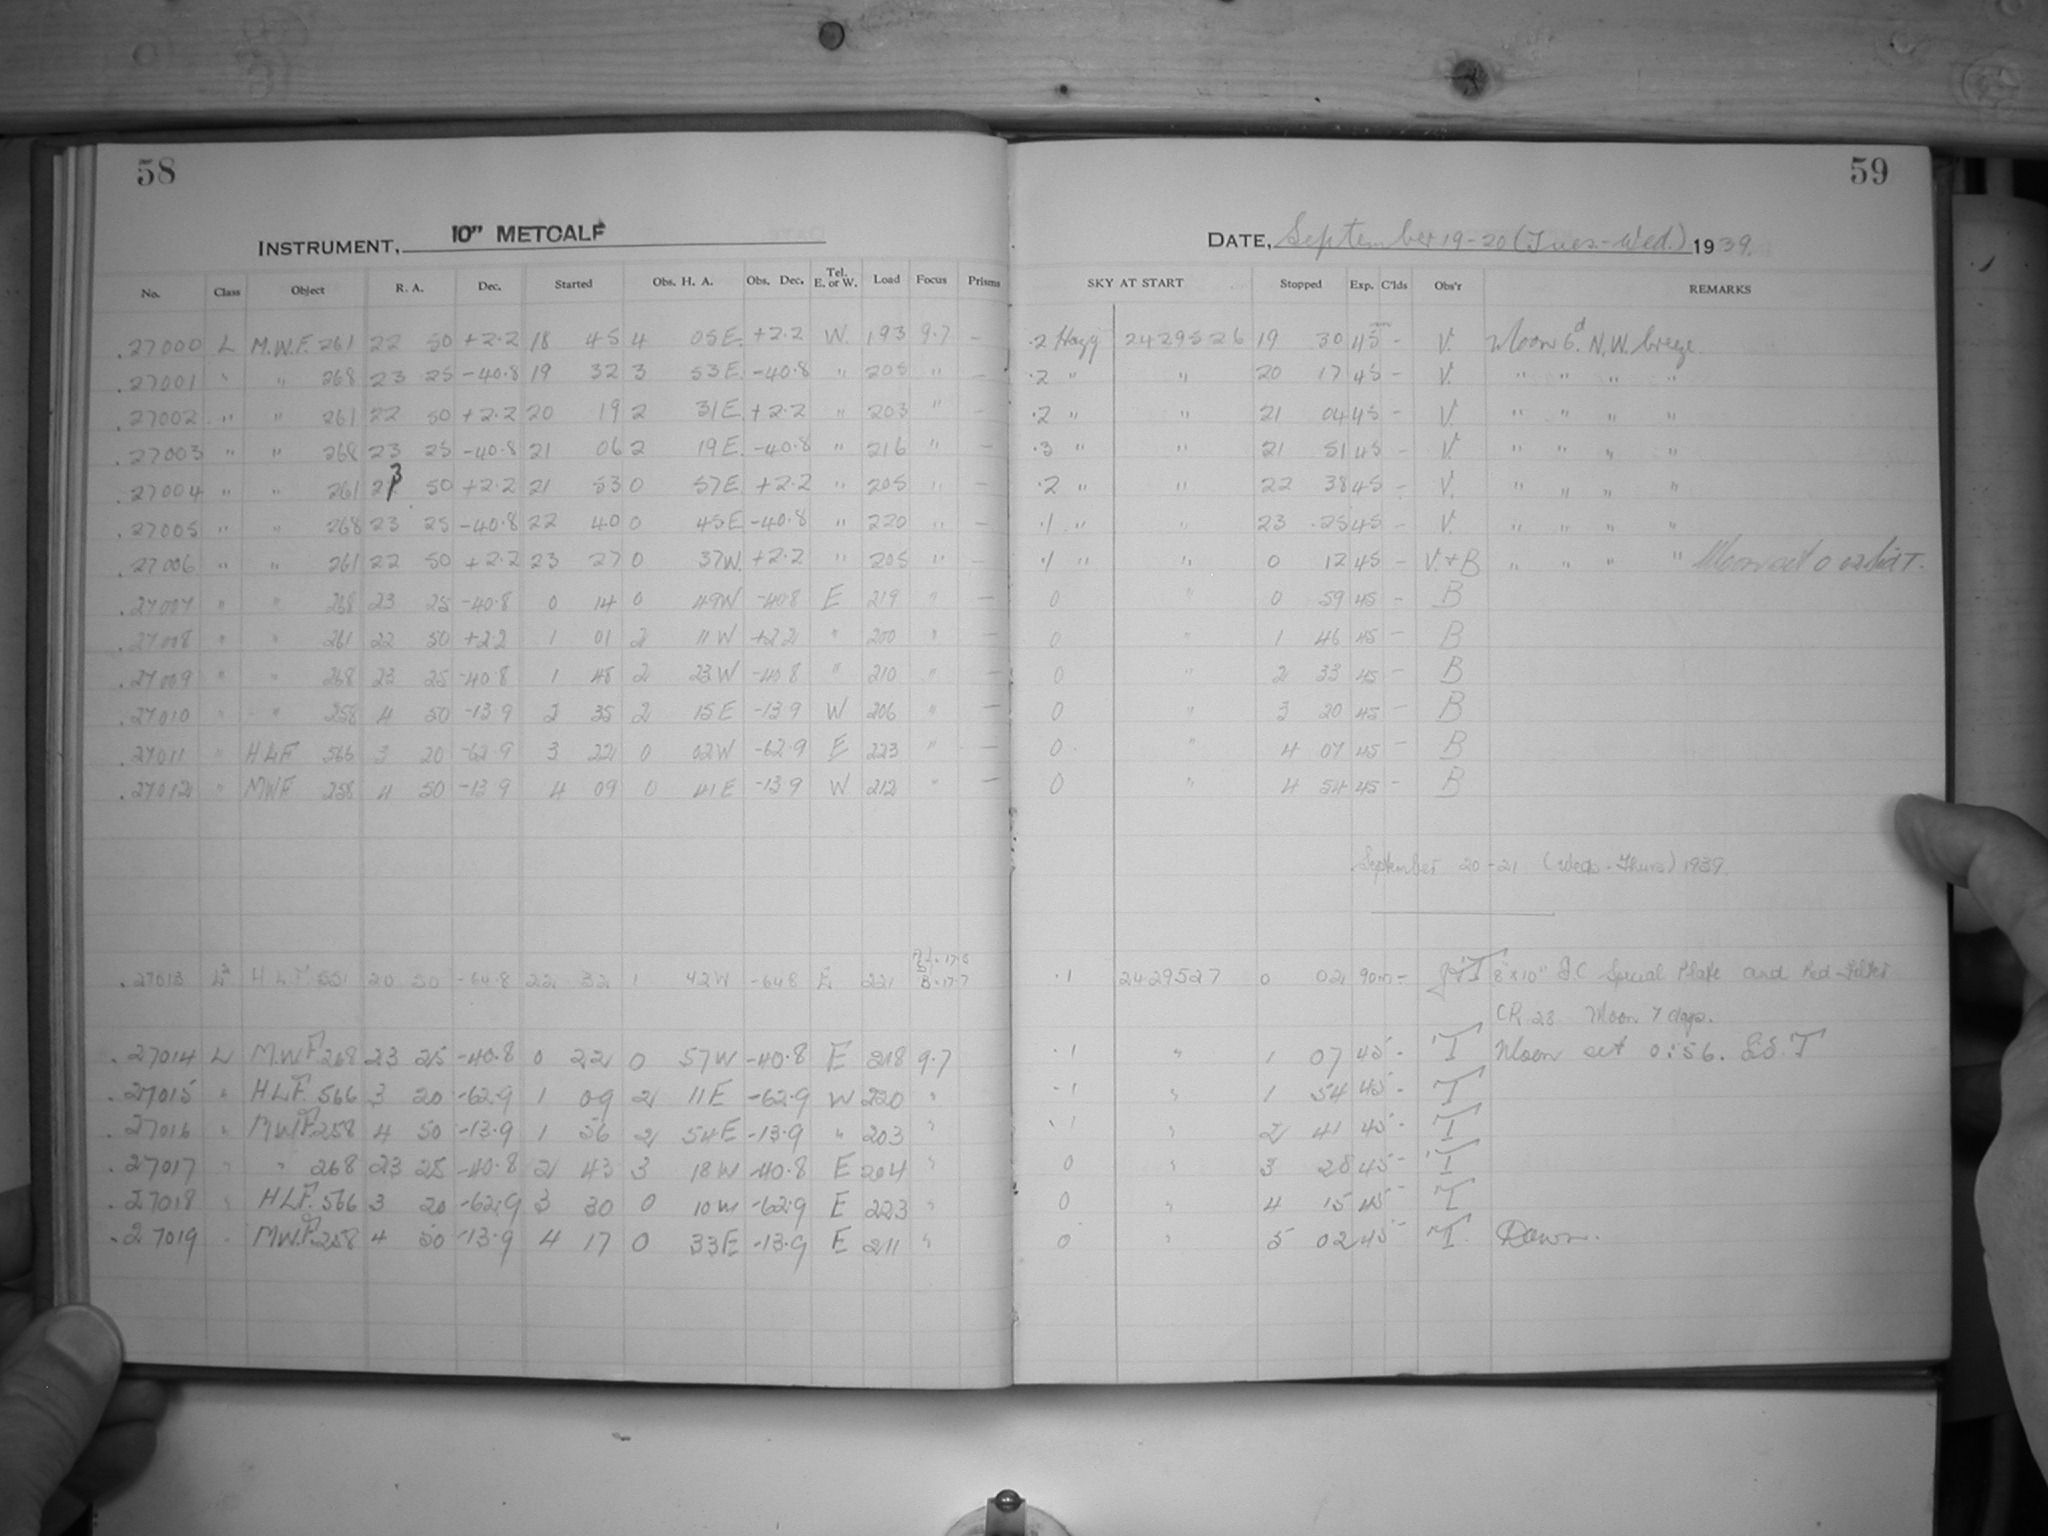 58
59
INSTRUMENT, 10" METCALF
DATE, September 19-20 (Tues.-Wed.) 1939.
No. Class Object R. A. Dec. Started Obs. H. A. Obs. Dec. Tel. E. or W. Load Focus Prisms SKY AT START Stopped Exp. C'lds Obs'r REMARKS
.27000 L M.W.F. 261 22 50 +2.2 18 45 4 05E. +2.2 W. 193 9.7 - .2 Hazy 2429526 19 30 45m - V. Moon 6d. N.W. breeze
.27001 " " 268 23 25 -40.8 19 32 3 53E. -40.8 " 205 " - .2 " " 20 17 45 - V. " " " "
.27002 " " 261 22 50 +2.2 20 19 2 31E. +2.2 " 203 " - .2 " " 21 04 45 - V. " " " "
.27003 " " 268 23 25 -40.8 21 06 2 19E. -40.8 " 216 " - .3 " " 21 51 45 - V. " " " "
.27004 " " 261 23 50 +2.2 21 53 0 57E. +2.2 " 205 " - .2 " " 22 38 45 - V. " " " "
.27005 " " 268 23 25 -40.8 22 40 0 45E -40.8 " 220 " - .1 " " 23 25 45 - V. " " " "
.27006 " " 261 22 50 +2.2 23 27 0 37W. +2.2 " 205 " - .1 " " 0 12 45 - V.+B " " " " Moon set 0 02
.27007 " " 268 23 25 -40.8 0 14 0 49W -40.8 E 219 " - 0 " 0 59 45 - B
.27008 " " 261 22 50 +2.2 1 01 2 11W +2.2 " 200 " - 0 " 1 46 45 - B
.27009 " " 268 23 25 -40.8 1 48 2 23W -40.8 " 210 " - 0 " 2 33 45 - B
.27010 " " 258 4 50 -13.9 2 35 2 15E -13.9 W 206 " - 0 " 3 20 45 - B
.27011 " HLF 566 3 20 -62.9 3 22 0 02W -62.9 E 223 " - 0 " 4 07 45 - B
.27012 " MWF 258 4 50 -13.9 4 09 0 41E -13.9 W 212 " - 0 " 4 54 45 - B
September 20-21 (Weds-Thurs) 1939.
.27013 L H.L.F 551 20 50 -64.8 22 32 1 42W -64.8 E 221 B.17.7 .1 2429527 0 02 90m - 8"x10" Special Plate and Red-Filter
CR 23. Moon 7 days.
.27014 L M.W.F. 268 23 25 -40.8 0 22 0 57W -40.8 E 218 9.7 .1 " 1 07 45 - T Moon set 0:56.
.27015 " H.L.F. 566 3 20 -62.9 1 09 2 11E -62.9 W 220 " .1 " 1 54 45 - T
.27016 " M.W.F. 258 4 50 -13.9 1 56 2 54E -13.9 " 203 " .1 " 2 41 45 - T
.27017 " " 268 23 25 -40.8 2 43 3 18W -40.8 E 204 " 0 " 3 28 45 - T
.27018 " HLF. 566 3 20 -62.9 3 30 0 10W -62.9 E 223 " 0 " 4 15 45 - T
.27019 " M.W.F. 258 4 50 -13.9 4 17 0 33E -13.9 E 211 " 0 " 5 02 45 - T. Dawn.